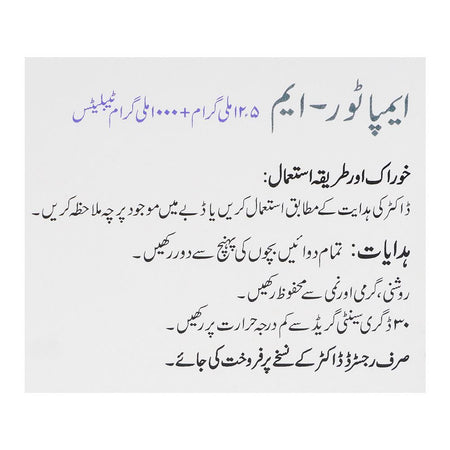 ایمپاٹور-ایم ۱۲.۵ ملی گرام + ۱۰۰۰ ملی گرام ٹیبلیٹس
خوراک اور طریقہ استعمال:
ڈاکٹر کی ہدایت کے مطابق استعمال کریں یا ڈبے میں موجود پرچہ ملاحظہ کریں۔
ہدایات: تمام دوائیں بچوں کی پہنچ سے دور رکھیں۔
روشنی، گرمی اور نمی سے محفوظ رکھیں۔
۳۰ ڈگری سینٹی گریڈ سے کم درجہ حرارت پر رکھیں۔
صرف رجسٹرڈ ڈاکٹر کے نسخے پر فروخت کی جائے۔